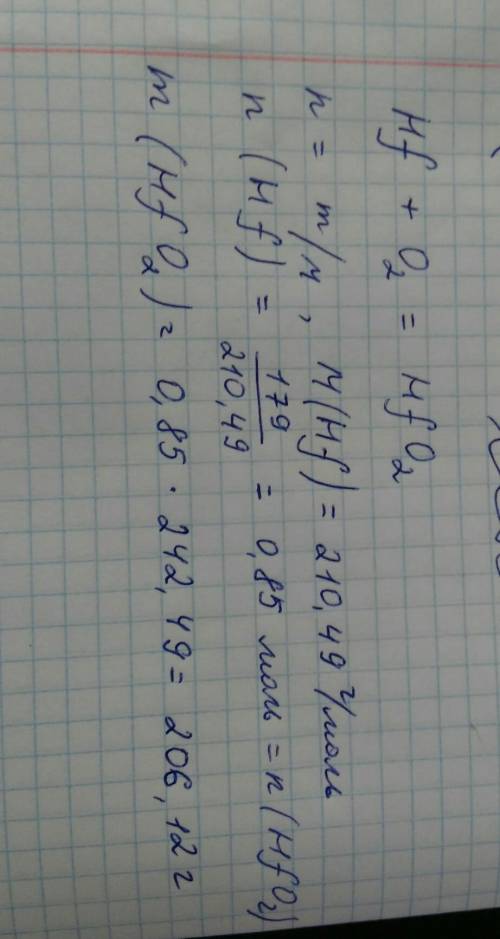 Hf + O₂ = HfO₂
n = m/M, M(Hf) = 210,49 г/моль
n (Hf) = 179/210,49 = 0,85 моль = n(HfO₂)
m (HfO₂) = 0,85 · 242,49 = 206,12 г